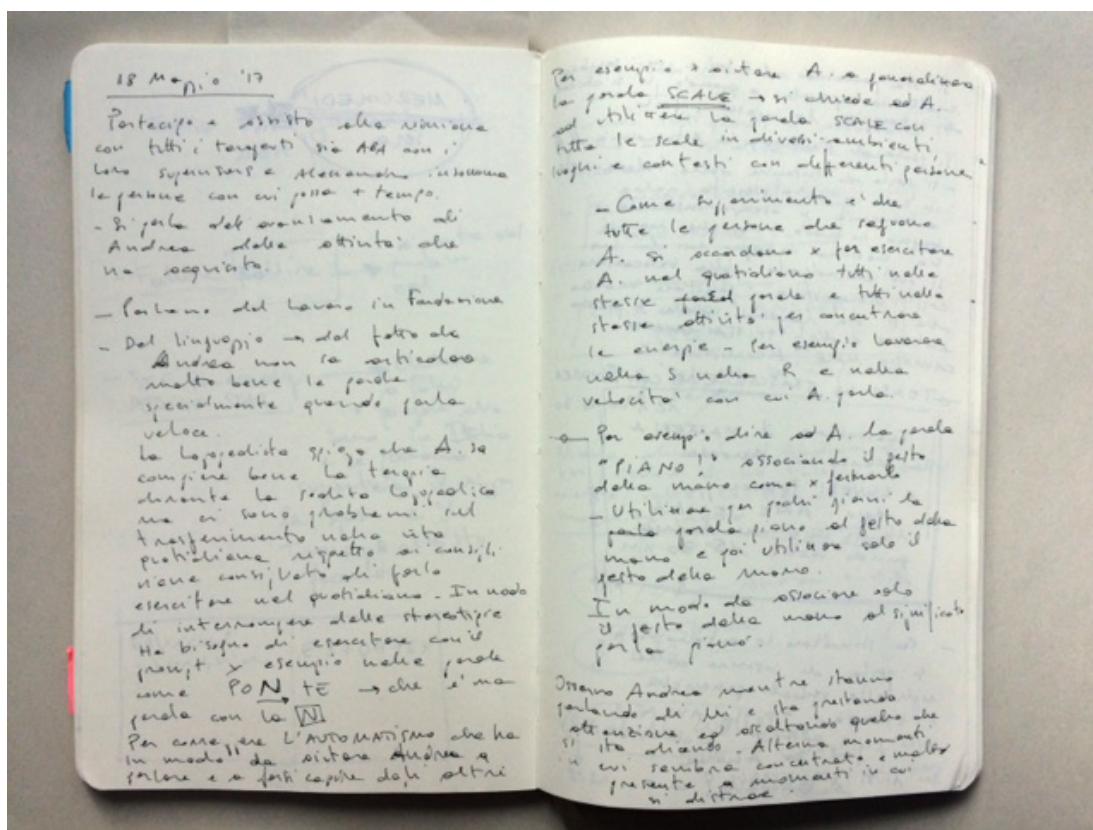 18 Maggio '17
Partecipo e assisto alla riunione
con tutti i terapisti sia ABA con i
loro supervisors e Alessandro insomma
le persone con cui passa + tempo.
- Si parla dell'avanzamento di
Andrea delle attività che
ha acquisito.
- Parliamo del lavoro in Fondazione
- Del linguaggio → dal fatto che
Andrea non sa articolare
molto bene le parole
specialmente quando parla
veloce.
La logopedista spiega che A. sa
compiere bene la terapia
durante la seduta logopedica
ma ci sono problemi sul
trasferimento nella vita
quotidiana rispetto ai consigli
viene consigliato di farlo
esercitare nel quotidiano - In modo
di interrompere delle stereotipie
Ha bisogno di esercitare con il
prompt x esempio nelle parole
come PONTE → che è una
parola con la N
Per correggere L'AUTOMATISMO che ha
in modo da aiutare Andrea a
parlare e a farsi capire dagli altri
Per esempio x aiutare A. a generalizzare
la parola SCALE → si chiede ad A.
ad utilizzare la parola SCALE con
tutte le scale in diversi ambienti
luoghi e contesti con differenti persone
- Come suggerimento è che
tutte le persone che seguono
A. si accordano x far esercitare
A. nel quotidiano tutti nelle
stesse parole e tutti nelle
stesse attività per concentrare
le energie - Per esempio lavorare
nella S nella R e nella
velocità con cui A. parla.
- Per esempio dire ad A. la parola
"PIANO!" associando il gesto
della mano come x fermarlo
- Utilizzare per pochi giorni la
parola piano al gesto della
mano e poi utilizzare solo il
gesto della mano.
In modo da associare solo
il gesto della mano al significato
parla piano.
Osservo Andrea mentre stanno
parlando di lui e sta prestando
attenzione ed ascoltando quello che
si sta dicendo. Alterna momenti
in cui sembra concentrato e molto
presente a momenti in cui
si distrae.